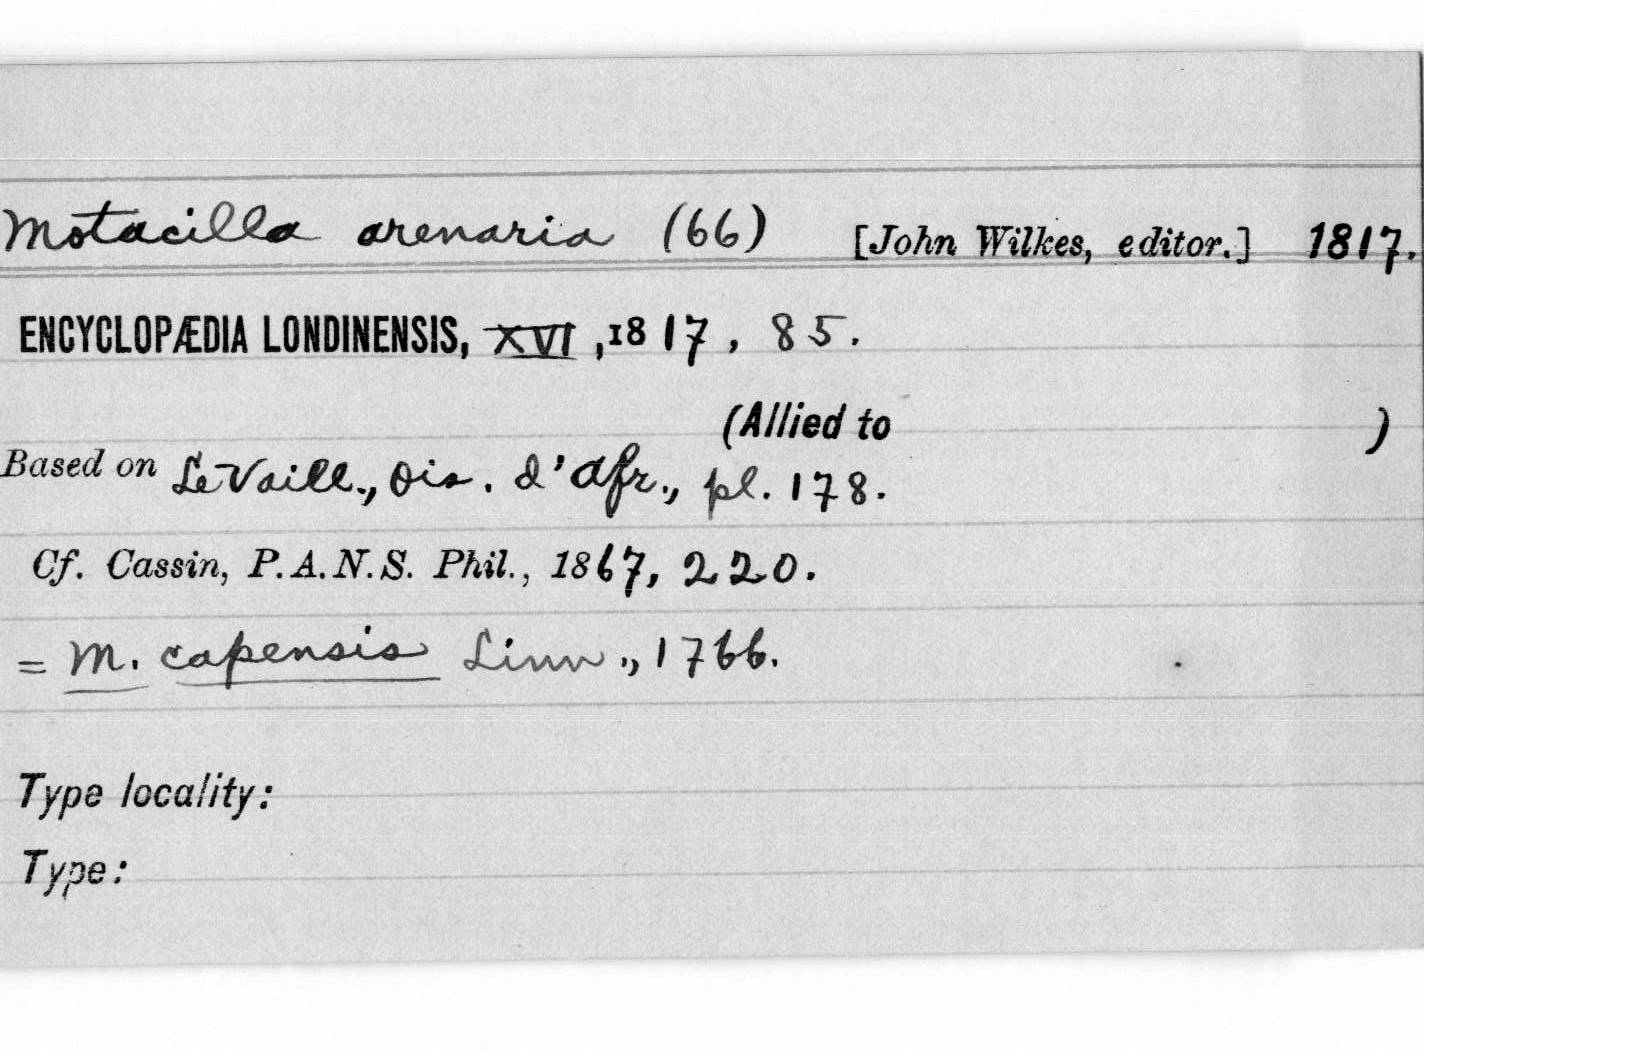 Motacilla arenaria (66) [John Wilkes, editor.] 1817.
ENCYCLOPÆDIA LONDINENSIS, XVI, 1817, 85.
(Allied to )
Based on LeVaill., Ois. d'Afr., pl. 178.
Cf. Cassin, P.A.N.S. Phil., 1867, 220.
= M. capensis Linn., 1766.
Type locality:
Type: